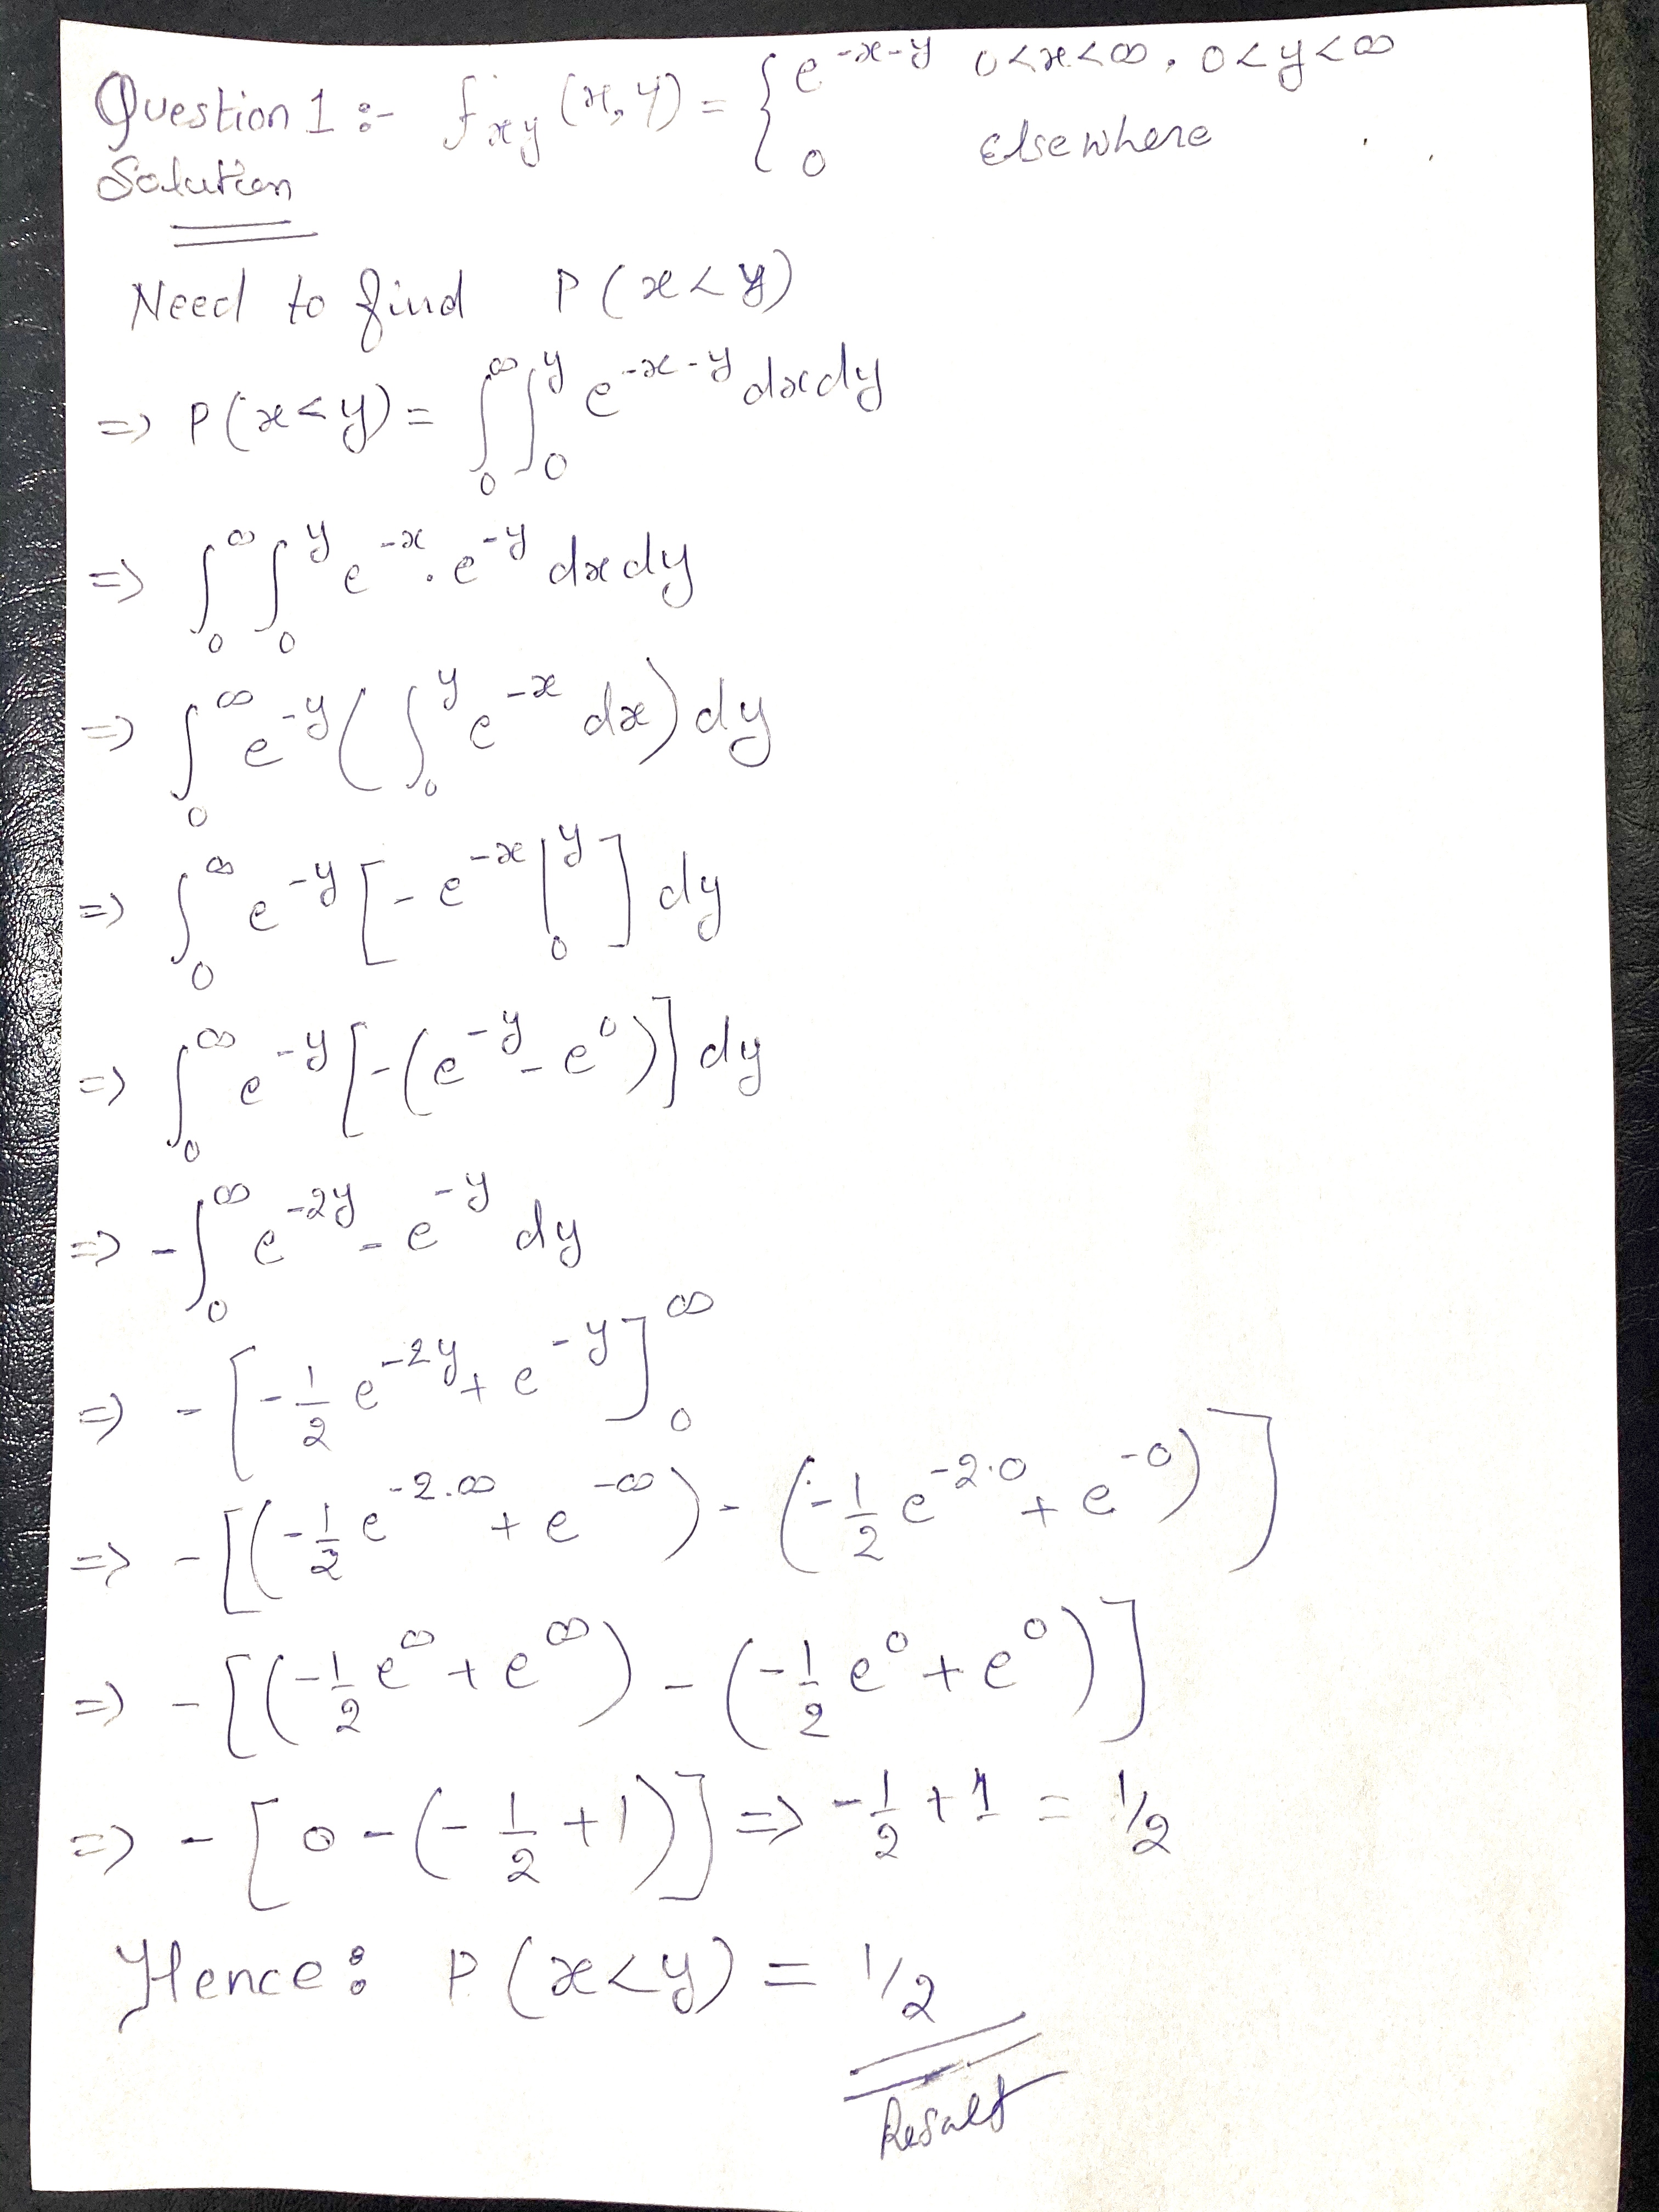 Question 1 :- f_xy (x, y) = { e^{-x-y} 0<x<∞, 0<y<∞
0 Elsewhere
Solution
Need to find P(x<y)
=> P(x<y) = ∫_0^∞ ∫_0^y e^{-x-y} dxdy
=> ∫_0^∞ ∫_0^y e^{-x} . e^{-y} dxdy
=> ∫_0^∞ e^{-y} ( ∫_0^y e^{-x} dx) dy
=> ∫_0^∞ e^{-y} [ -e^{-x} |_0^y ] dy
=> ∫_0^∞ e^{-y} [-(e^{-y} - e^0)] dy
=> -∫_0^∞ e^{-2y} - e^{-y} dy
=> - [ -1/2 e^{-2y} + e^{-y} ]_0^∞
=> - [(-1/2 e^{-2.∞} + e^{-∞}) - (-1/2 e^{-2.0} + e^{-0})]
=> - [(-1/2 e^∞ + e^∞) - (-1/2 e^0 + e^0)]
=> - [0 - (-1/2 + 1)] => -1/2 + 1 = 1/2
Hence: P(x<y) = 1/2
Result